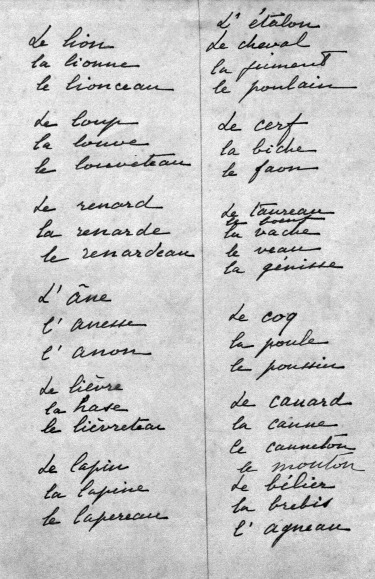 Le lion
la lionne
le lionceau
Le loup
la louve
le louveteau
Le renard
la renarde
le renardeau
L'âne
l'anesse
l'anon
Le lièvre
la hase
le lièvreteau
Le lapin
la lapine
le lapereau
L'étalon
Le cheval
la jument
le poulain
Le cerf
la biche
le faon
Le taureau
le bœuf
la vache
le veau
la génisse
Le coq
la poule
le poussin
Le canard
la canne
le canneton
le mouton
Le bélier
la brebis
l'agneau